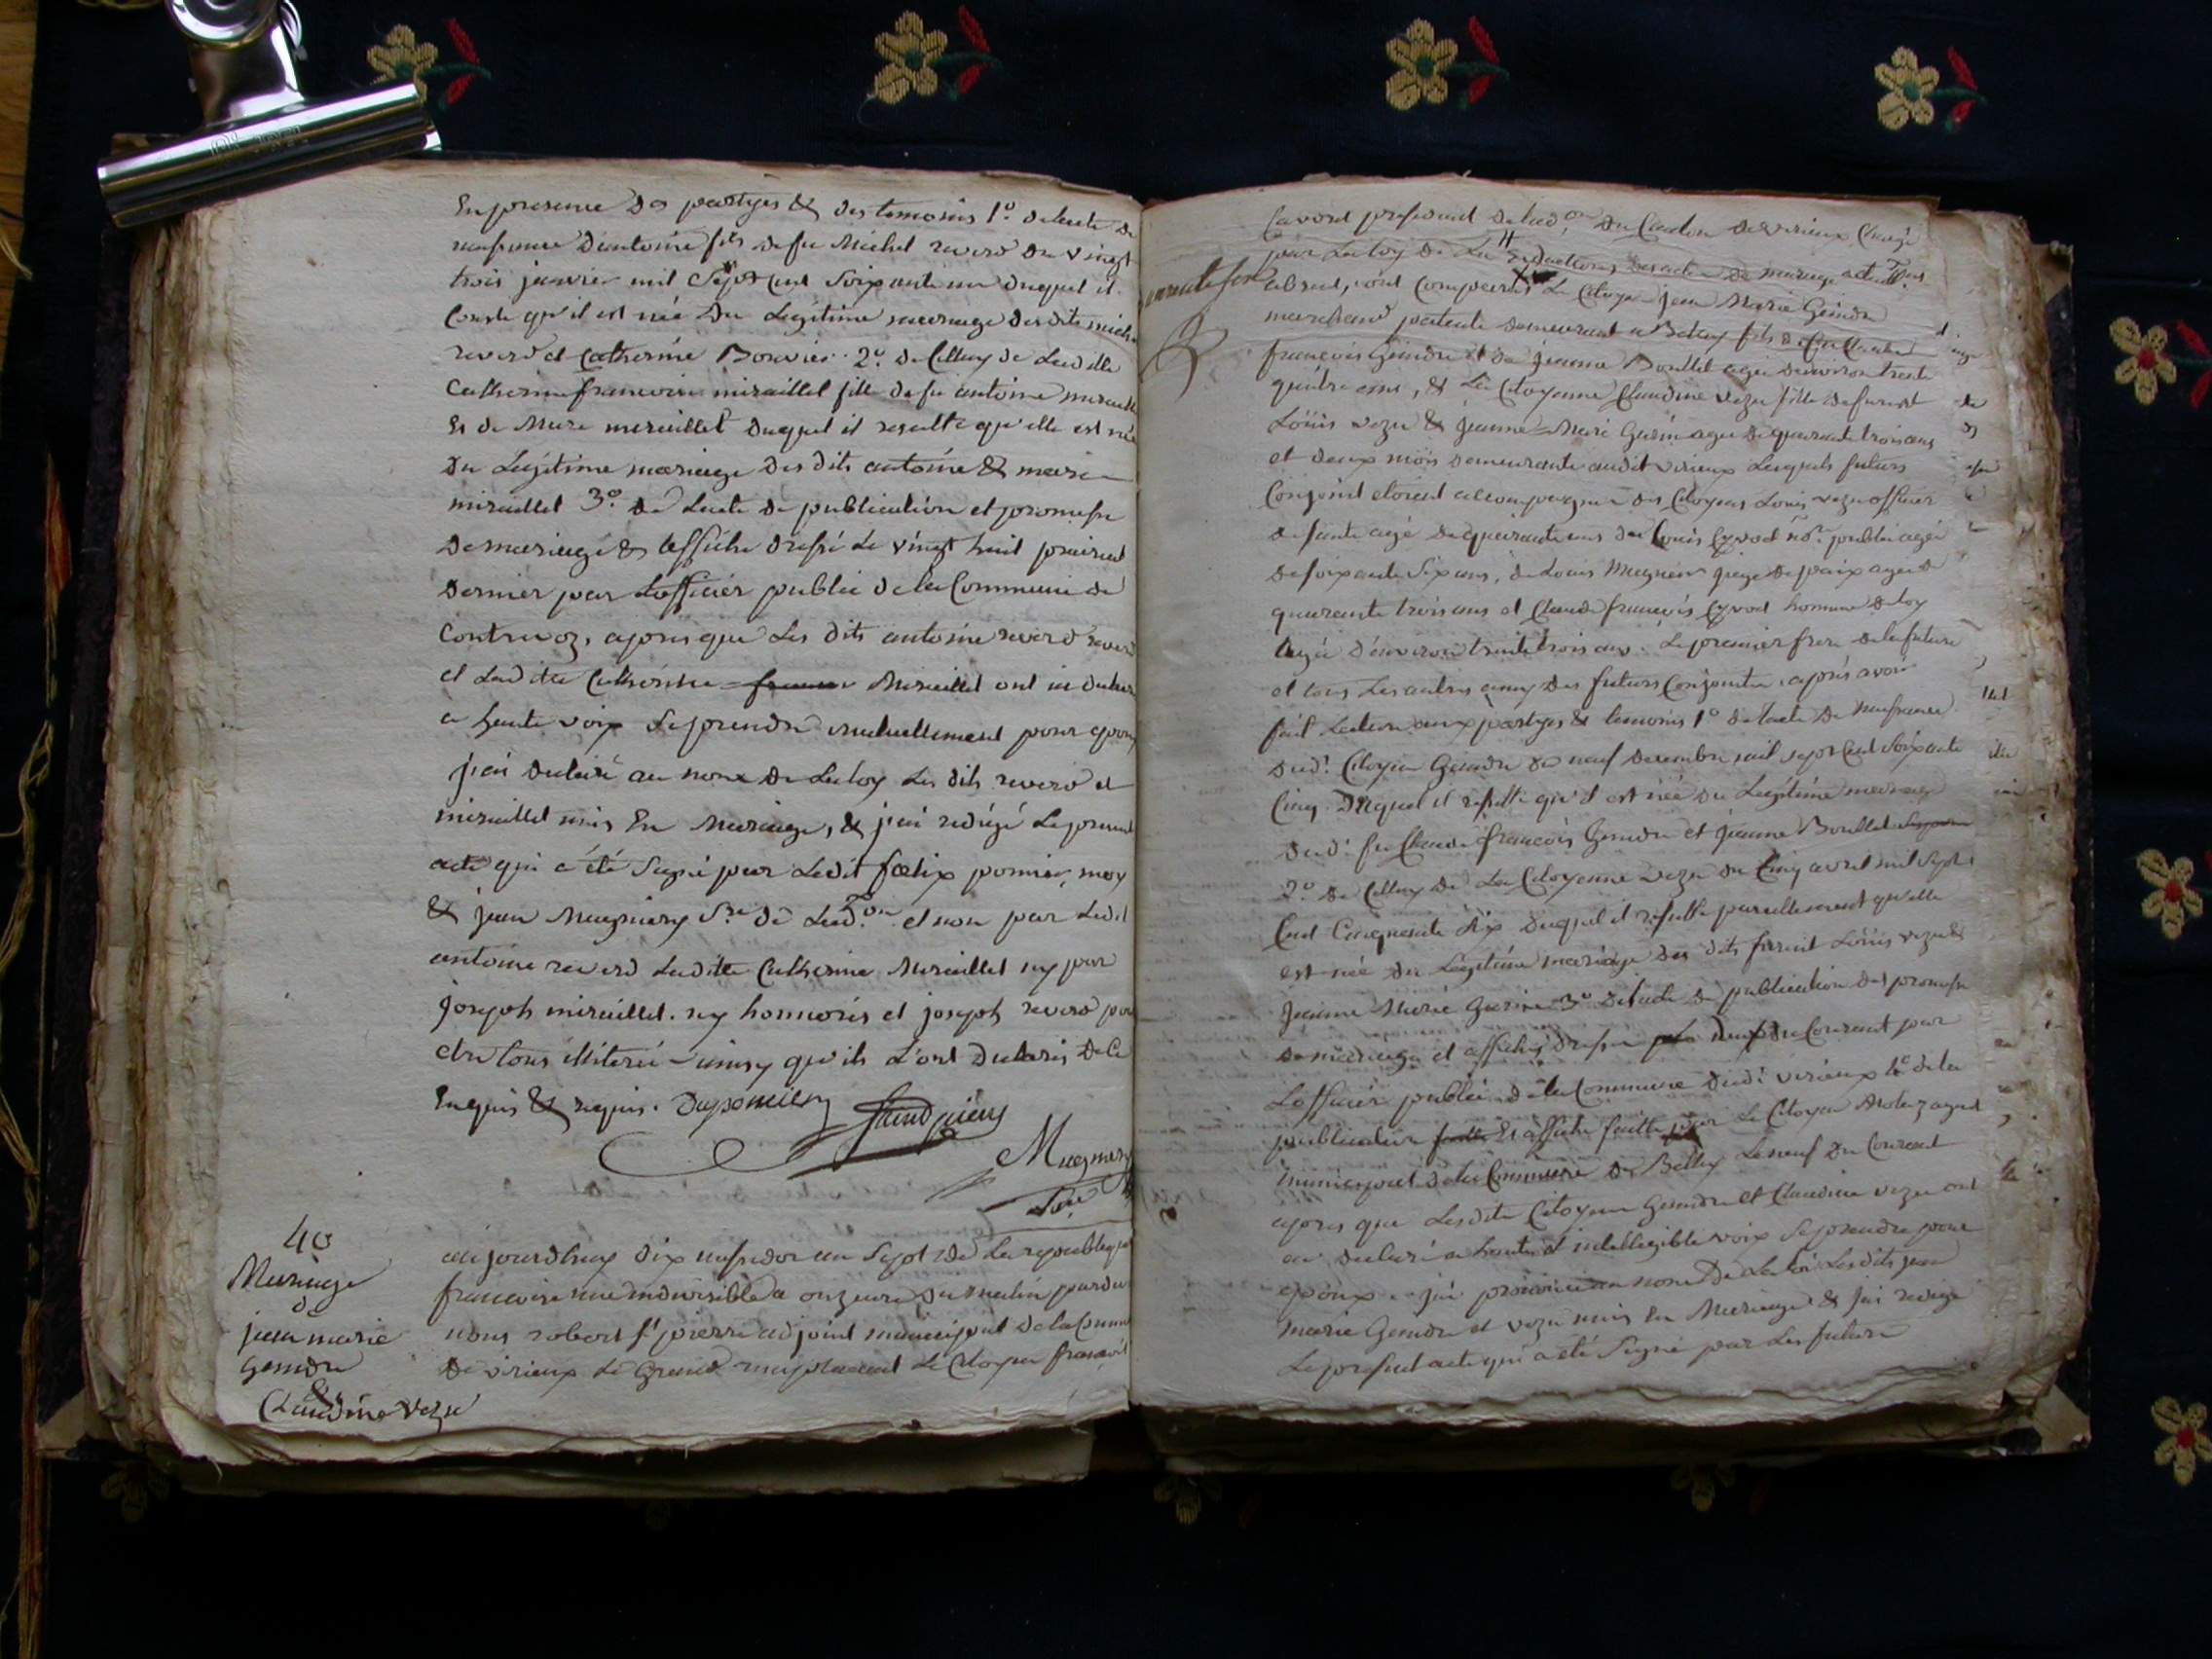 En presence des partyes & des temoins 1.º de lacte de
naissance dantoine fils de feu Michel reverd du vingt
trois janvier mil Sept Cent Soixante un duquel il
Conste qu'il est née du Legitime mariage desdits michel
reverd et Catherine Bonvier. 2.º de Celluy de Laditte
Catherine francoise miraillet fille de fu antoine miraillet
Et de Marie miraillet duquel il resulte qu'elle est née
du Legitime mariage des dits antoine & marie
miraillet 3.º de Lacte de publication et promesse
de mariage & affiche dressé Le vingt huit prairial
dernier par Lofficier public de la Commune de
Contrevoz, apres que Les dits antoine reverd
et Laditte Catherine Miraillet ont
a haute voix Se prendre mutuellement pour epoux
j'ai declaré au nom de La loy Les dits reverd et
miraillet unis En Mariage, & j'ai redigé Le present
acte qui a été Signé par Ledit fœlix pomier, moy
& jean Magniery S.re de Lad.on et non par Ledit
antoine reverd Laditte Catherine Miraillet ny par
joseph miraillet. ny honnoris et joseph reverd pour
etre tous illiteré ainsy qu'ils L'ont declaris de Ce
Enquis & requis.
40
Mariage
de
jean marie
Gemdre
&
Claudine vezu
aujourdhuy dix messidor an Sept de La republique
francoise une indivisible a onze heures du matin pardevant
nous robert S.t pierre adjoint municipal de la Commune
de virieux Le Grand remplacant Le Citoyen francois
Cavord president de Lad.on du Canton de virieux Chargé
par La loy de La redactions des actes de mariage
absent, ont Comparus Le Citoyen jean Marie Gemdre
marchand patenté demeurant a Belley fils de feu Claude
francois Gemdre et de jeanne Boullet agé denviron trente
quatre ans, & La Citoyenne Claudine vezu fille defunt
Loüis vezu & jeanne Marie Guerin agée de quarante trois ans
et deux mois demeurante audit virieux Lesquels futurs
Conjoint etoient accompagné des Citoyens Louis vezu officier
de sante agé de quarante ans de Louis Cyvoct no.re public agé
de soixante Six ans, de Louis Magnien juge de paix agé de
quarante trois ans et Claude francois Cyvoct homme de loy
Agée d'environ trente trois ans. Le premier frere de la future
et tous Les autres amy des futurs Conjoints, apres avoir
fait Lecture aux partyes & temoins 1º de lacte de naissance
dud.t Citoyen Gemdre du neuf decembre mil sept Cent Soixante
Cinq. Duquel il resulte qu'il est née du Legitime mariage
dud.t fu Claude francois Gemdre et jeanne Boullet
2.º de Celluy de La Citoyenne vezu du Cinq avril mil Sept
Cent Cinquante Six duquel il resulte pareillement qu'elle
est née du Legitime mariage des dits furent Loüis vezu &
jeanne Marie Guerin 3º de lacte de publication des promesse
de mariage et affiches dresse du Courant par
Lofficier public de la Commune dud.t virieux 4.º de la
publication Et affiche faitte par Le Citoyen agent
municipal de la Commune de Belley Le neuf du Courant
apres que Lesdits Citoyen Gemdre et Claudine vezu ont
declaré a haute et intelligible voix Se prendre pour
epoux. jai prononcé au nom De La loi Lesdits jean
marie Gemdre et vezu unis En Mariage & jai redigé
Le present acte qui a été Signé par Les futurs